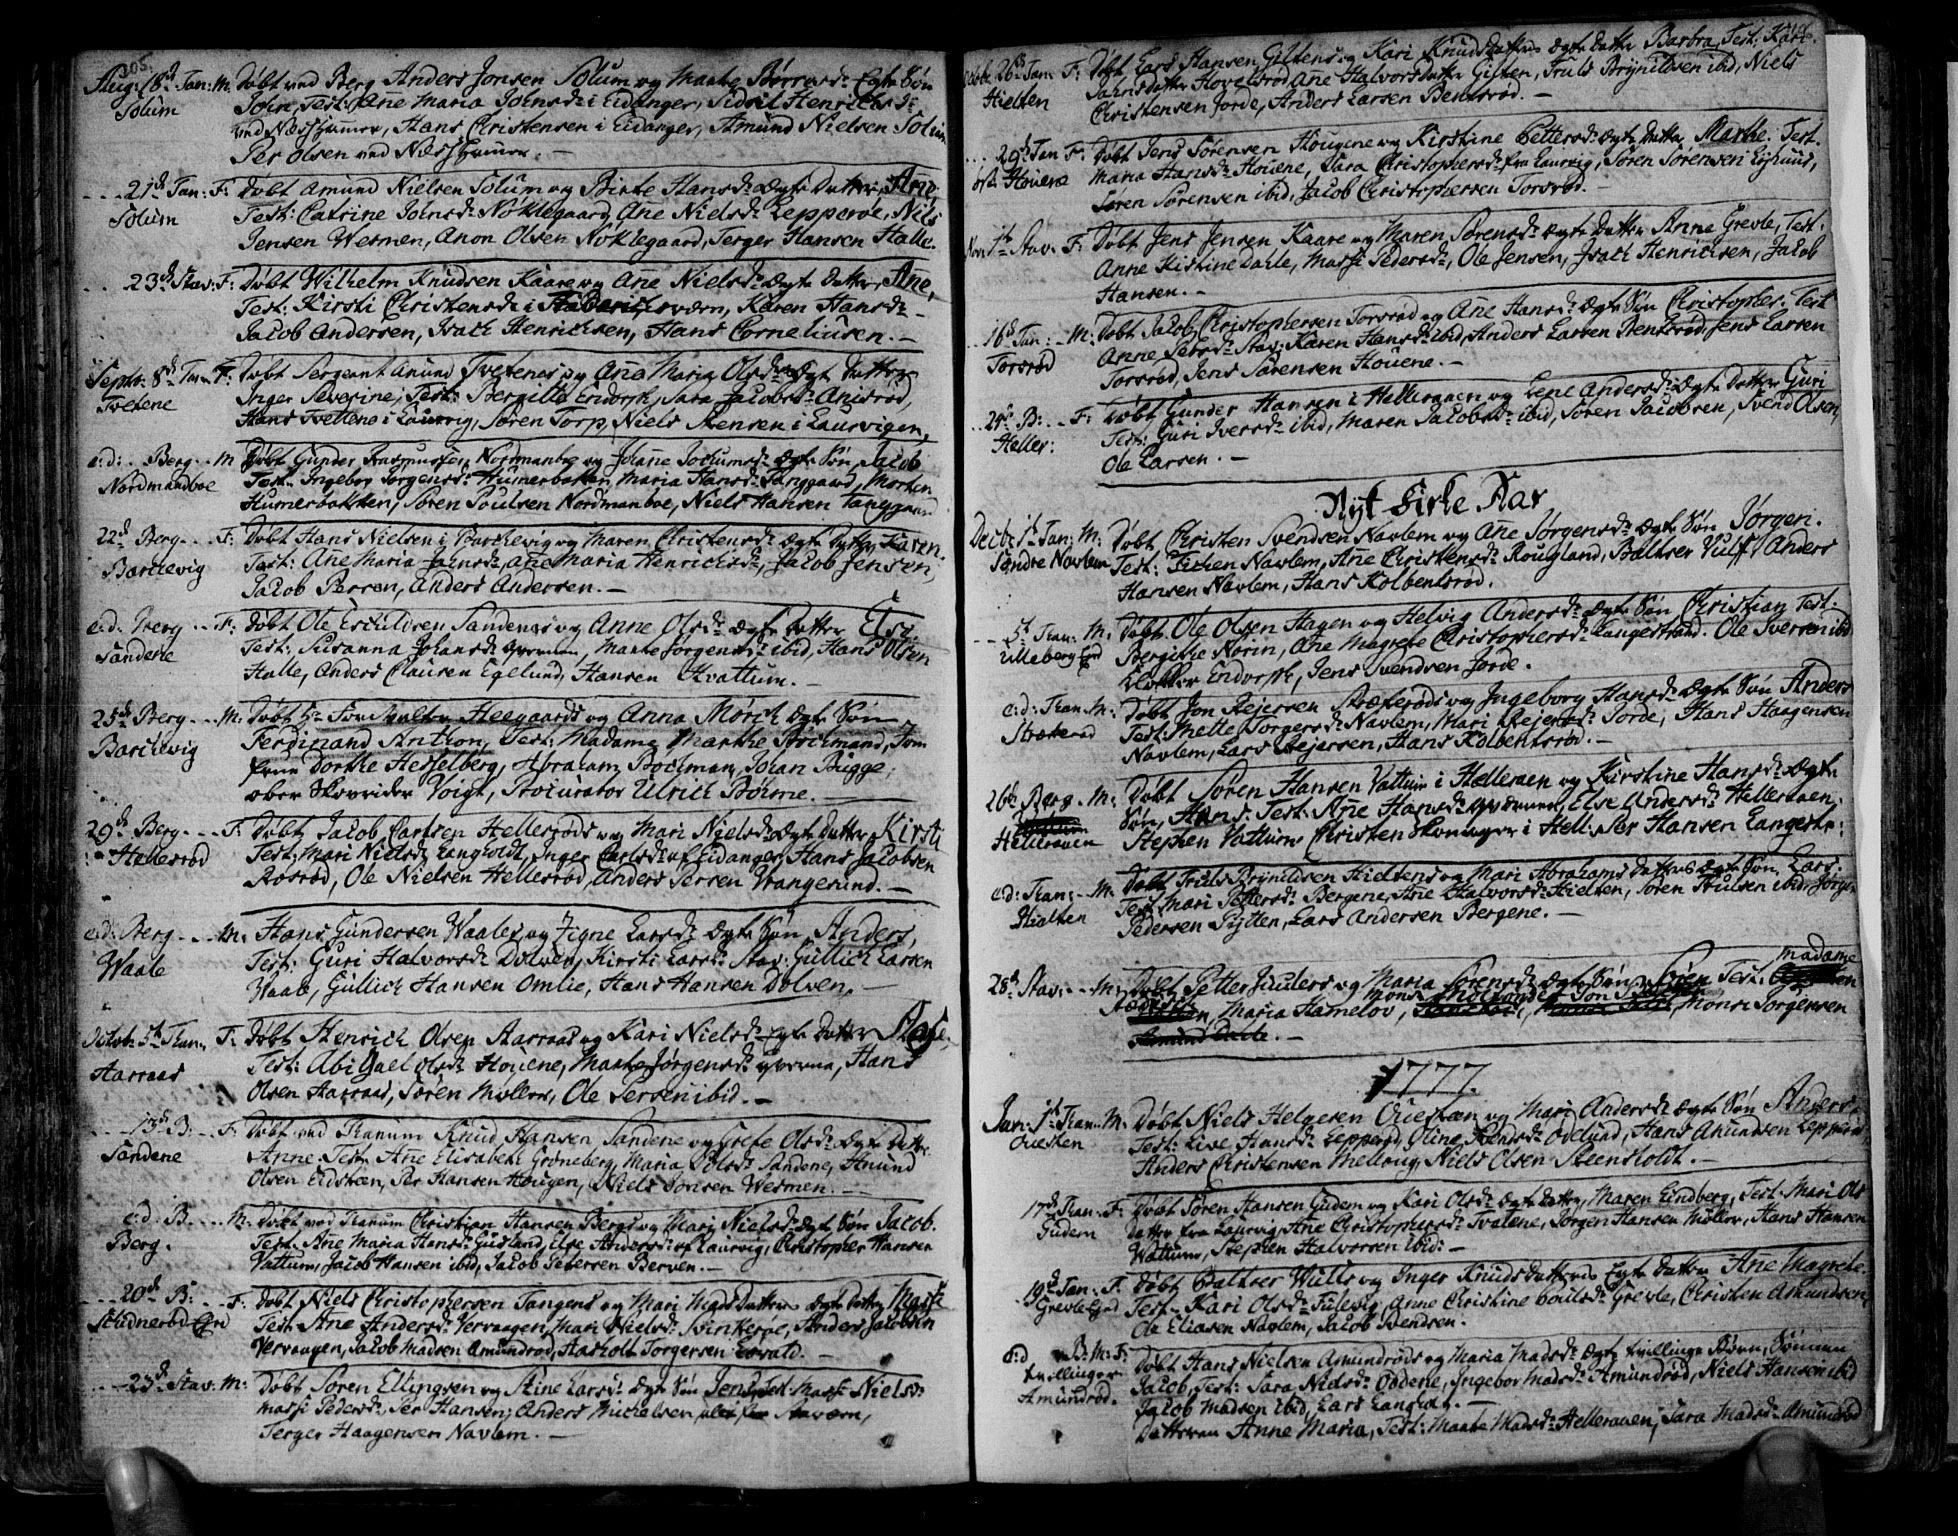 105.
Aug: 18de Tan: M. Døbt ved Berg Anders Jonsen Solum og Marthe Børresd: Egte Søn
Solum John, Test: Ane Maria Johnsd: i Eidanger, Sidsil Henrichsd:
ved Næss, Hans Christensen i Eidanger, Amund Nielsen Solum
Per Olsen ved Næss
21de Tan: F: Døbt Amund Nielsen Solum og Birte Hansd: Ægte Datter Ane
Solum Test: Catrine Johnsd: Nøklegaard, Ane Nielsd: Lepperøe, Nils
Jensen Wesmen, Anon Olsen Noklegaard, Terger Hansen Halle.
23de Stav: F: Døbt Wilhelm Knudsen Kaare og Ane Nielsd: Ægte Datter Ane,
Test: Kirsti Christensd: i Friderichsværn, Karen Hansd:
Jacob Andersen, Isach Henrichsen, Hans Corneliusen. —
Septr: 8de Tan F: Døbt Sergeant Anund Tvetenes og Ane Maria Olsd: Ægte Datter
Tvetene Inger Severine, Test: Bergitte Endorph, Sara Jacobsd: Anisrød,
Hans Tvettene i Laurvig, Søren Torp, Niels Stensen i Laurvigen,
e:d: Berg M Døbt Gunder Rasmussen Nordmanboe og Johane Jochumsd: Ægte Søn Jacob
Nordmandboe Test. Ingebor Jørgensd: Humerbakken, Maria Hansd: Tanggaard, Morten
Humerbakken, Søren Poulsen Nordmanboe, Niels Hansen Tanggaard
22de Berg F: Døbt Hans Nielsen i Barchevig og Maren Christensd: Ægte Datter Karen.
Barchevig Test: Ane Maria Jahnsd:, Ane Maria Henrichsd:, Jacob Jensen,
Jacob Persen, Anders Andersen. —
e:d: Berg F: Døbt Ole Esculdsen Sandenes og Anne Olsd: Ægte Datter Else.
Sandene Test: Susanna Johansd: Marthe Jørgensd: ibid, Hans Olsen
Halle, Anders Clausen Egelund, Hansen Hvattum. —
25de Berg M: Døbt Hr Forvalter Heegaards og Anna Mörch Ægte Søn
Barchevig Ferdinand Anthon, Test: Madame Marthe Brichmand, Jom
frue Dorthe Hesselberg, Abraham Bochman, Johan Bugge,
ober Skovrider Voigt, Procurator Ulrich Böhme.
29de Berg F: Døbt Jacob Carlsen Hellesrøds og Mari Nielsd: Ægte Datter Kirsti
Hellesrød Test: Mari Nielsd: Langholdt, Inger Carlsd: af Eidanger, Hans Jacobsen
Rosrød, Ole Nielsen Hellesrød, Anders Persen Vrangesund. —
e:d: Berg M: Hans Gundersen Waales og Zigne Larsd: Ægte Søn Anders,
Waale Test: Guri Halvorsd: Dolven, Kirsti Larsd: Stav: Gullich Larsen
Waale, Gullich Hansen Omlie, Hans Hansen Dolven, —
Octob: 5te Tan F: Døbt Henrich Olsen Aarraas og Kari Nielsd: Egte Datter
Aarraas Test: Abigael Olsd: Houene, Marthe Jørgensd: Hans
Olsen Aarraas, Søren Møller, Ole Persen ibid. —
13de B: F: Døbt ved Tanum Knud Hansen Sandene og Grete Olsd: Ægte Datter
Sandene Anne. Test Ane Elisabeth Grøneberg, Maria Polsd: Sandene, Amund
Olsen Eidsteen, Per Hansen Hougen, Niels Jonsen Wesmen. —
e:d: B. M: Døbt ved Tanum Christian Hansen Bergs og Mari Nielsd: Ægt Søn Jacob.
Berg. Test. Ane Maria Hansd: Gusland, Else Andersd: af Laurvig, Christopher Hansen
Vattum, Jacob Hansen ibid, Jacob Petersen Berven. —
20de B: F: Døbt Niels Christophersen Tangens og Mari Mads Datters Ægte Datter
Test Ane Andersd: Vervaagen, Mari Nielsd: Svinkerøe, Anders Jacobsen
Vervaagen, Jacob Madsen Amundrød, Aasholt Torgersen —
23de Stav. M: Døbt Søren Ellingsen og Stine Larsd: Ægte Søn Jens, Test. Masse Nielsd:
Masse Pedersd: Per Hansen, Anders Michelsen
Terger Haagensen Navlem. —
Octobr 26de Tan: F: Døbt Lars Hansen Giltens og Kari Knudsdatters Ægte Datter Barbra, Test: Kari
Hielten Ane Halvorsdatter Gilten, Truls Brynildsen ibid, Niels
Christensen Jorde, Anders Larsen Bentsrød. —
29de Tan F: Døbt Jens Sørensen Hougene og Kirstine Pettersd: Ægte Datter Marthe. Test.
øst: Houene Maria Hansd: Houene, Sara Christophersd: fra Laurvig, Søren Sørensen Eglund,
Søren Sørensen ibid, Jacob Christophersen Torsrød. —
Nov: 1te Stav. F: Døbt Jens Jensen Kaare og Maren Sørensd: Ægte Datter Anne Grevle, Test.
Anne Kistine Dahle, Masse Pedersd:, Ole Jensen, Isach Henrichsen, Jacob
Hansen. —
16de Tan: M: Døbt Jacob Christophersen Torsrød og Ane Hansd: Ægte Søn Christopher. Test
Torsrød Anne Persd: Stav: Karen Hansd: ibid, Anders Larsen Bentsrød, Jens Larsen
Torsrød, Jens Sørensen Houene. —
29de B: F: Døbt Gunder Hansen i Helleraaen og Lene Andersd: Ægte Datter Guri
Heller: Test: Guri Iversd: ibid, Maren Jacobsd: ibid, Søren Jacobsen, Svend Olsen,
Ole Larsen. —
Nyt Kirke Aar
Decbr 1te Tan: M: Døbt Christen Svendsen Navlem og Ane Jørgensd: Ægte Søn Jørgen.
Søndre Navlem Test: Navlem, Ane Christensd: Rougland, Baltser Vulf, Anders
Hansen Navlem, Hans Kolbentsrød.
5te Tan: M: Døbt Ole Olsen Hagen og Helvig Andersd: Ægte Søn Christian Test.
Ulleberg Bergithe Norin, Ane Magrete Christophersd: Langestrand. Ole Iversen ibid
Klokker Endorph, Jens Svendsen Jorde.
e:d: Tan: M: Døbt Jon Rejersen Strækerøds og Ingeborg Hansd: Ægte Søn Anders
Strækerød Test. Mette Torgersd: Navlem, Mari Rejersd: Jorde, Hans Haagensen
Navlem, Lars Rejersen, Hans Kolbentsrød. —
26de Berg M: Døbt Søren Hansen Vattum i Helleraaen og Kirstine Hansd: Ægte
Helleraaen Søn, Hans, Test: Ane Hansd: Else Andersd: Helleraaen,
Stephen Vattum, Christen Skomager i Hell: Per Hansen Langestr:
e:d: Tan: M: Døbt Truls Brynildsen Hieltens og Mari Abrahams datters Ægt Søn, Lars.
Hielten Test Mari Pettersd: Bergene, Ane Halvorsd: Hielten, Søren Trulsen ibid, Jørgen
Pedersen Lars Andersen Bergene. —
madame
28de Stav: M: Døbt Petter Juulers og Maria Sørensd: Ægte Søn Søren Test:
Maria Hamelov, Mons: Jørgensen
1777.
Jan: 1te Tan. M: Døbt Niels Helgesen Qvesten og Mari Andersd: Ægte Søn Anders.
Qvesten Test: Live Hansd: Lepperød, Stine Svendsd: Odelund, Hans Amundsen Lepperød
Anders Christensen Melloug, Niels Olsen Steensholdt. —
17de Tan. F: Døbt Søren Hansen Gudem og Kari Olsd: Ægte Datter, Maren Lindberg, Test: Mari Ols
Gudem Datter fra Laurvig, Ane Christophersd: Tvetene, Jørgen Hansen Møllov, Hans Hansen
Wattum, Stephen Halvorsen ibid: —
19de Tan. F. Døbt Baltser Wulfs og Inger Knudsdatters Egte Datter Ane Magrete.
Grevle Test. Kari Olsd: Fulevig, Anne Christine Povlsd: Grevle, Christen Amundsen,
Ole Eliasen Navlem, Jacob Svendsen.
e:d B: M: F: Døbt Hans Nielsen Amundrøds og Maria Madsd: Ægte tvillinge Børn, Sønnen
tvillinger Jacob, Test: Sara Nielsd: Oddene, Ingebor Madsd: Amundrød, Niels Hansen ibid
Amundrød. Jacob Madsen ibid, Lars Langholt. —
Datteren Anne Maria, Test: Marthe Madsd: Helleraaen, Sara Madsd: Amundrød